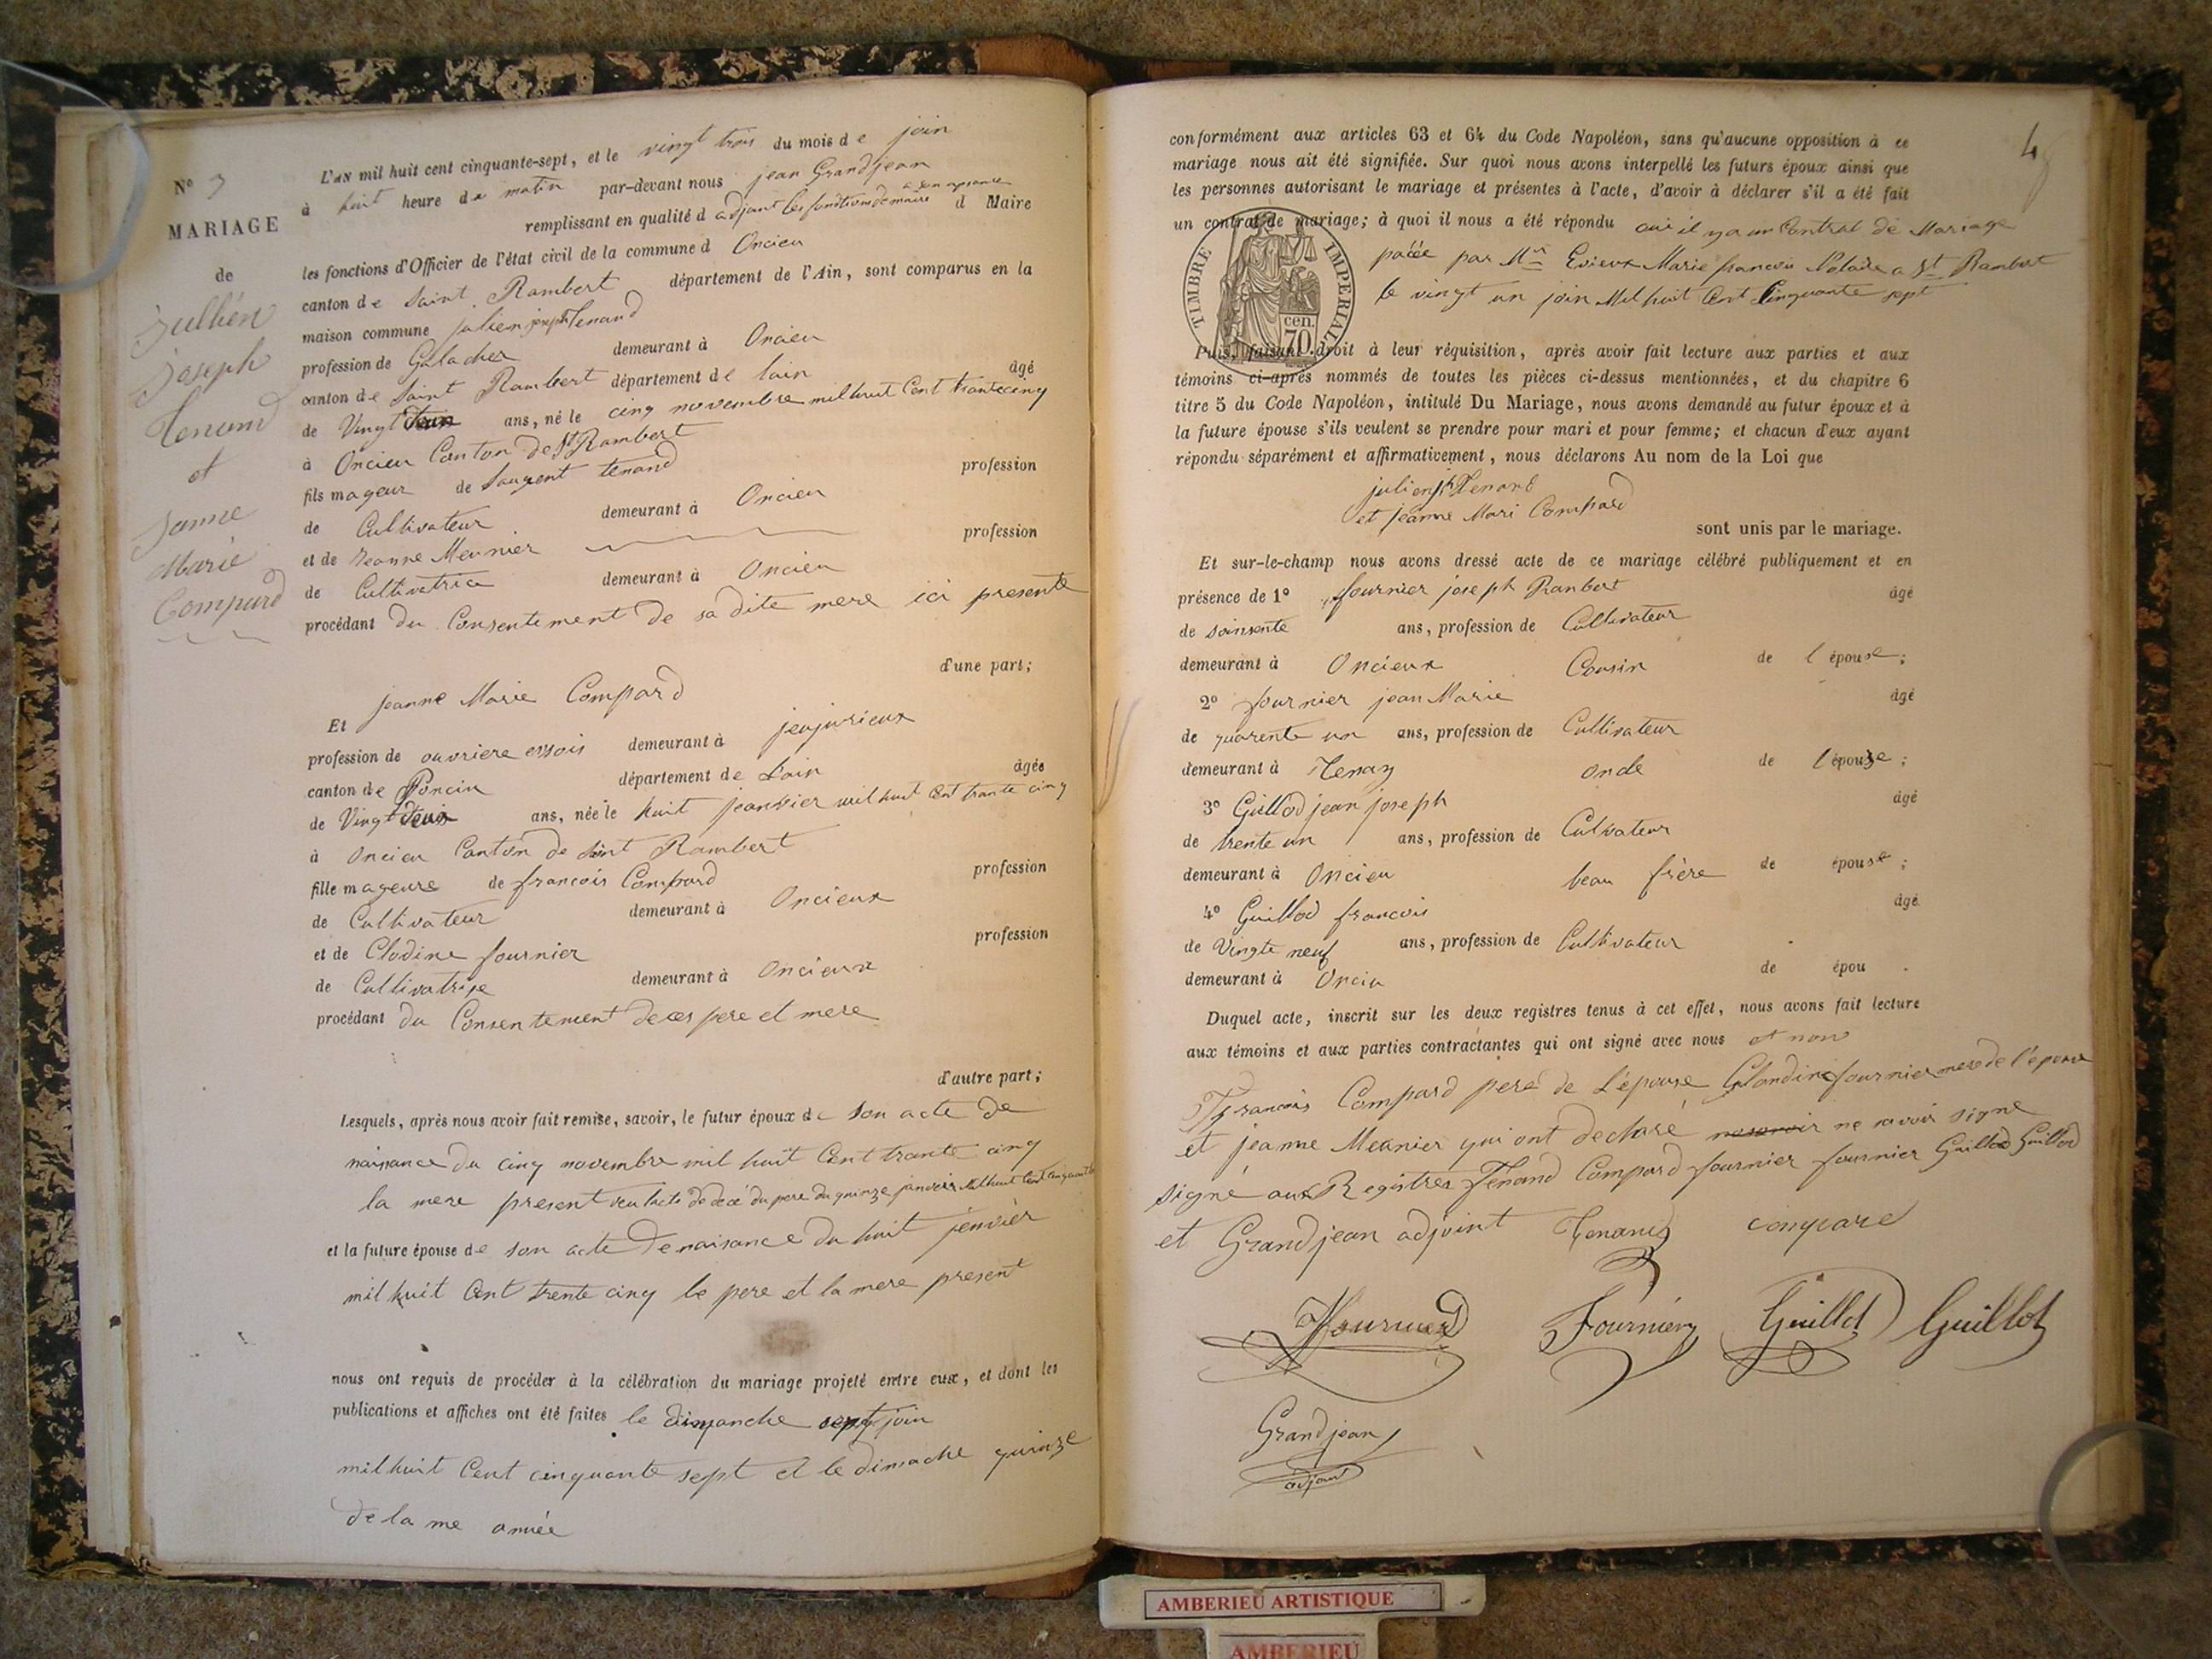 N° 3
MARIAGE
de
Jullien
Joseph
Tenand
et
Janne
Marie
Compard
L'AN mil huit cent cinquante-sept, et le vingt trois du mois de join
à huit heure du matin par-devant nous jean Grandjean
remplissant en qualité d adjoint les fonctions de maire d Maire
les fonctions d'Officier de l'état civil de la commune d Oncieu
canton de Saint Rambert département de l'Ain, sont comparus en la
maison commune julien joseph Tenand
profession de Galocher demeurant à Oncieu
canton de Saint Rambert département de lain âgé
de Vingt ans, né le cinq novembre mil huit Cent trante cinq
à Oncieu Canton de St Rambert
fils mageur de Laurent tenand profession
de Cultivateur demeurant à Oncieu
et de Jeanne Meunier profession
de Cultivatrice demeurant à Oncieu
procédant du Consentement de sa dite mere ici presente
d'une part;
Et jeanne Marie Compard
profession de ouvriere demeurant à jeujurieux
canton de Poncin département de Lain âgée
de Vingt deux ans, née le huit jeanvier mil huit Cent trante cinq
à Oncieu Canton de Saint Rambert
fille mageure de francois Compard profession
de Cultivateur demeurant à Oncieux
et de Clodine fournier profession
de Cultivatrise demeurant à Oncieux
procédant du Consentement de ces pere et mere
d'autre part;
Lesquels, après nous avoir fait remise, savoir, le futur époux de Son acte de
naisance du cinq novembre mil huit Cent trante cinq
la mere present du pere du quinze janvier Mil huit Cent
et la future épouse de son acte de naisance du huit jenvier
mil huit Cent trente cinq le pere et la mere present
nous ont requis de procéder à la célébration du mariage projeté entre eux, et dont les
publications et affiches ont été faites le dimanche sept join
mil huit Cent cinquante sept et le dimache quinze
de la me année
4
conformément aux articles 63 et 64 du Code Napoléon, sans qu'aucune opposition à ce
mariage nous ait été signifiée. Sur quoi nous avons interpellé les futurs époux ainsi que
les personnes autorisant le mariage et présentes à l'acte, d'avoir à déclarer s'il a été fait
un contrat de mariage; à quoi il nous a été répondu oui il y a un Contrat de Mariage
TIMBRE IMPERIAL
cen.
70
par Mr Evieux Marie francois Notaire a St Rambert
le vingt un join Mil huit Cent Cinquante sept
Puis, faisant droit à leur réquisition, après avoir fait lecture aux parties et aux
témoins ci-après nommés de toutes les pièces ci-dessus mentionnées, et du chapitre 6
titre 5 du Code Napoléon, intitulé Du Mariage, nous avons demandé au futur époux et à
la future épouse s'ils veulent se prendre pour mari et pour femme; et chacun d'eux ayant
répondu séparément et affirmativement, nous déclarons Au nom de la Loi que
julien jh Tenand
et jeanne Mari Compard
sont unis par le mariage.
Et sur-le-champ nous avons dressé acte de ce mariage célébré publiquement et en
présence de 1° fournier joseph Ranbert âgé
de soinsente ans, profession de Cultivateur
demeurant à Oncieux Cousin de l épouse;
2° fournier jean Marie âgé
de quarente un ans, profession de Cultivateur
demeurant à Tenay oncle de l épouse;
3° Guillod jean joseph âgé
de trente un ans, profession de Culvateur
demeurant à Oncieu beau frère de épouse;
4° Guillod francois âgé
de Vingte neuf ans, profession de Cultivateur
demeurant à Onciu de épou .
Duquel acte, inscrit sur les deux registres tenus à cet effet, nous avons fait lecture
aux témoins et aux parties contractantes qui ont signé avec nous et non
francois Compard pere de L'épouse Glaudine fournier mere de l'epouse
et jeanne Meunier qui ont declaré ne savoir signe
signé aux Registres Tenand Compard fournier fournier Guillod Guillod
et Grandjean adjoint Tenand conpard
Fournier Fournier Guillot Guillot
Grandjean
adjoint
AMBERIEU ARTISTIQUE
AMBERIEU